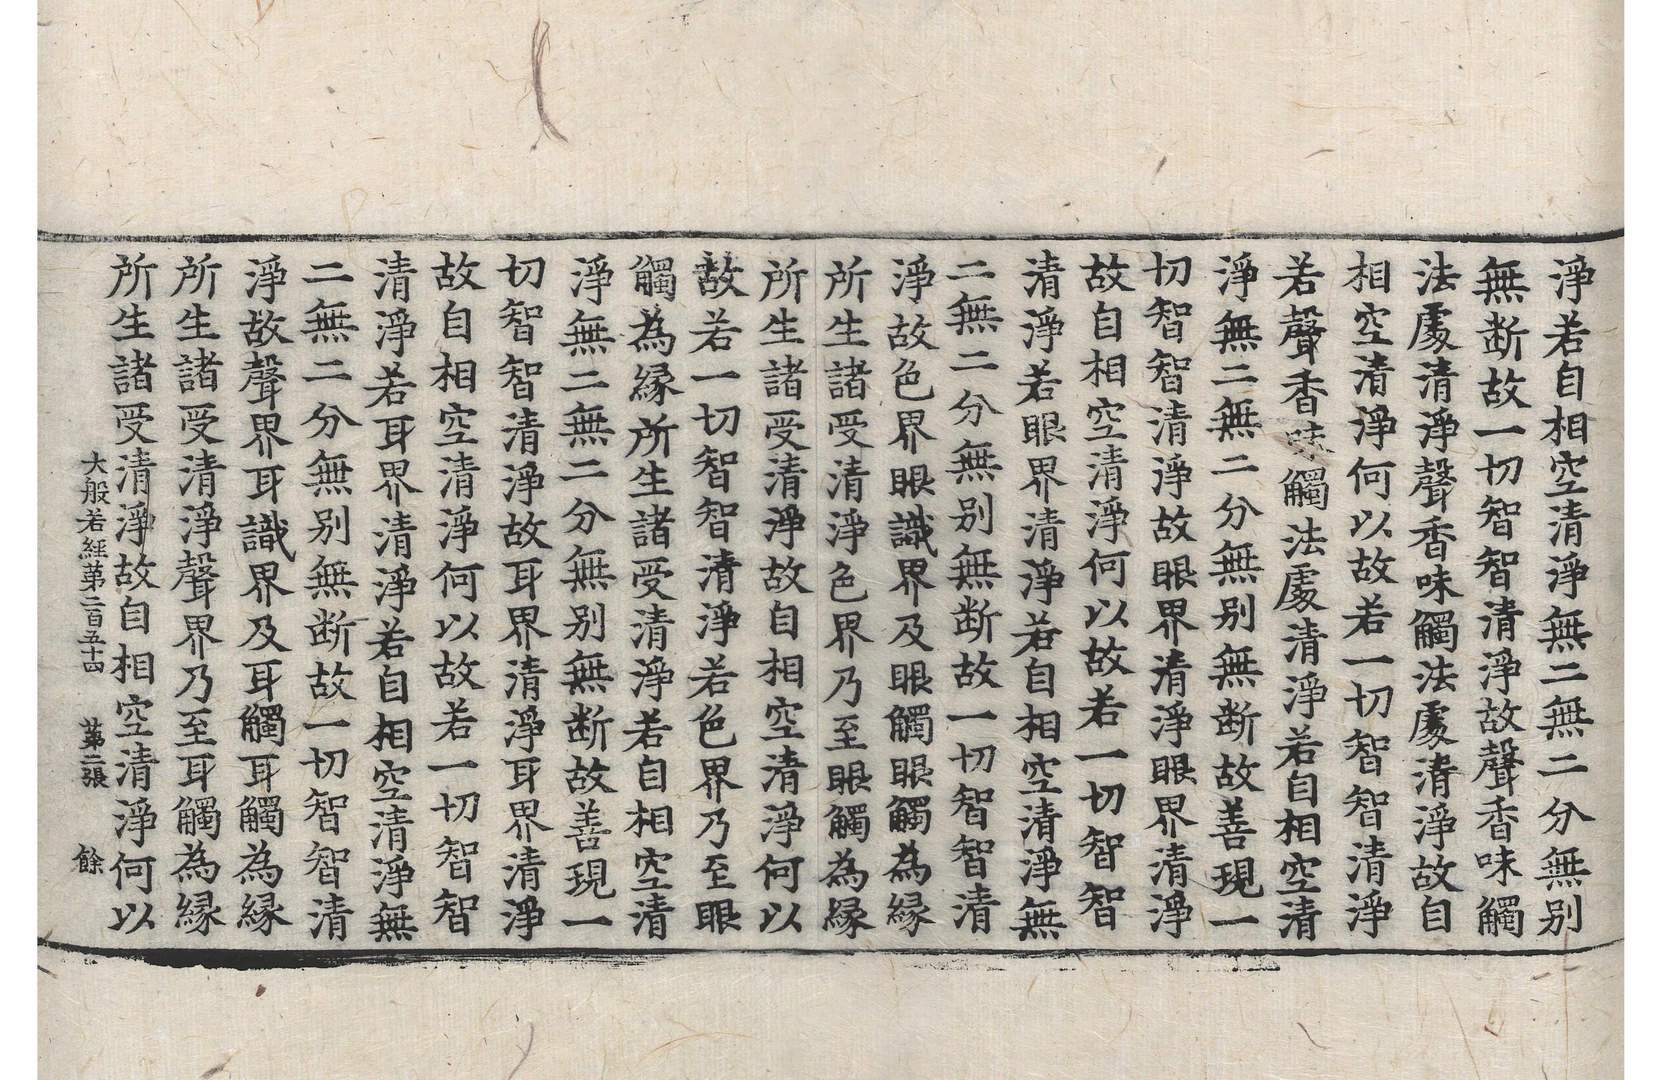 淨若自相空清淨無二無二分無別
無断故一切智智清淨故聲香味觸
法處清淨聲香味觸法處清淨故自
相空清淨何以故若一切智智清淨
若聲香味觸法處清淨若自相空清
淨無二無二分無別無断故善現一
切智智清淨故眼界清淨眼界清淨
故自相空清淨何以故若一切智智
清淨若眼界清淨若自相空清淨無
二無二分無別無断故一切智智清
淨故色界眼識界及眼觸眼觸為緣
所生諸受清淨色界乃至眼觸為緣
所生諸受清淨故自相空清淨何以
故若一切智智清淨若色界乃至眼
觸為緣所生諸受清淨若自相空清
淨無二無二分無別無断故善現一
切智智清淨故耳界清淨耳界清淨
故自相空清淨何以故若一切智智
清淨若耳界清淨若自相空清淨無
二無二分無別無断故一切智智清
淨故聲界耳識界及耳觸耳觸為緣
所生諸受清淨聲界乃至耳觸為緣
所生諸受清淨故自相空清淨何以
大般若經第二百五十四 第二張 餘